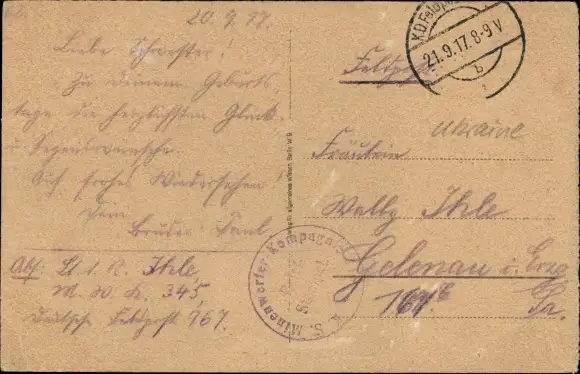 20.9.17.
Liebe Schwester!
Zu deinem Geburts
tage die herzlichsten Glück-
u. Segenswünsche.
Auf frohes Wiedersehen!
Dein
Bruder Paul
Abs: Lt d. R. Ihle,
M. W. K. 345,
Deutsche Feldpost 967.
K.D. Feldpost
21.9.17. 8-9 V
b
Feldpost
Ukraine
Fräulein
Wally Ihle
Gelenau i. Erzg
167b Sa.
S. Minenwerfer-Kompagnie